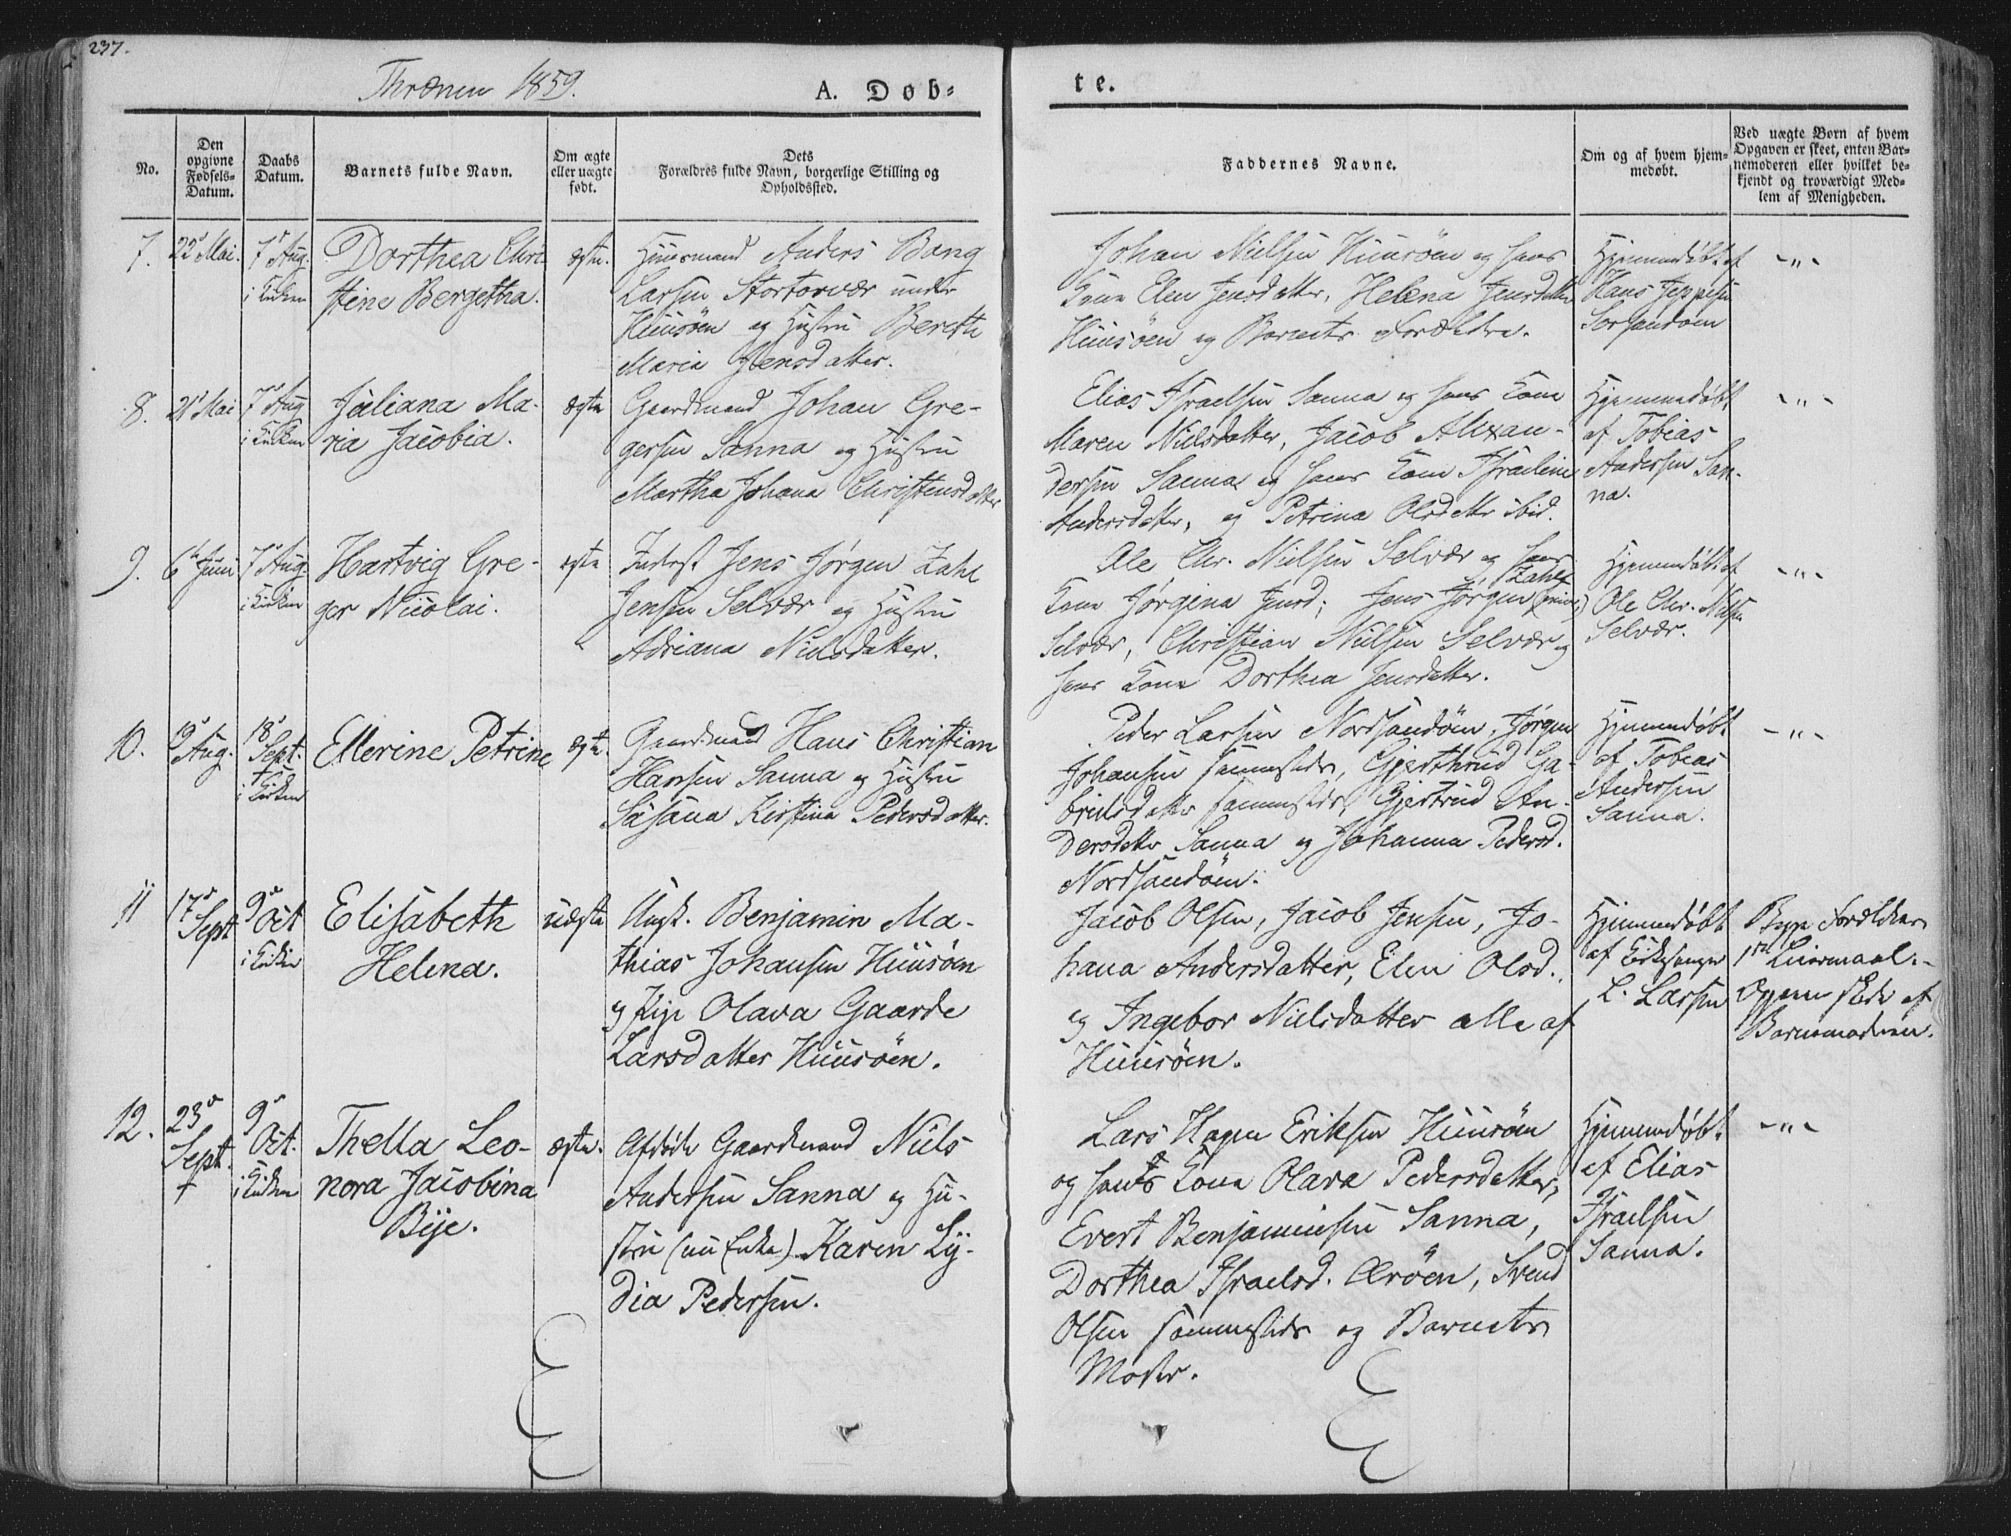 237.
Thrænen 1859.
A. Døb=
te.
No.
Den opgivne Fødsels= Datum.
Daabs Datum.
Barnets fulde Navn.
Om ægte eller uægte født.
Dets Forældres fulde Navn, borgerlige Stilling og Opholdssted.
Faddernes Navne.
Om og af hvem hjem= medøbt.
Ved uægte Børn af hvem Opgaven er skeet, enten Bar= nemoderen eller hvilket be= kjendt og troværdigt Med= lem af Menigheden.
7.
22 Mai.
7 Aug.
i Kirken
Dorthea Chri
stine Bergetha.
ægte.
Huusmand Anders Bang
Larsen Stortorvær under
Huusöen og Hustru Bereth
Maria Jensdatter.
Johan Nielsen Huusöen og hans
Kone Elen Jensdatter, Helena Jensdatter
Huusöen og Barnets Forældre.
Hjemmedøbt af
Hans Jeppesen
Sorsandøen
-"-
8.
21 Mai
7 Aug
i Kirken
Juliana Ma-
ria Jacobia.
ægte
Gaardmand Johan Gre-
gersen Sanna og Hustru
Martha Johana Christensdatter
Elias Israelsen Sanna og hans Kone
Maren Nielsdatter, Jacob Alexan-
dersen Sanna og hans Kone Israeline
Andersdatter, og Petrina Olsdatter ibid.
Hjemmedøbt
af Tobias
Andersen San-
na.
-"-
9.
6 Juni
7 Aug
i Kirken
Hartvig Gre-
ger Nicolai.
ægte
Inderst Jens Jørgen Zahl
Jensen Selvær og Hustru
Adriana Nielsdatter.
Ole Chr. Nielsen Selvær og hans
Kone Jørgina Jensd; Jens Jørgen Zahl
Selvær, Christian Nielsen Selvær og
hans Kone Dorthea Jensdatter.
Hjemmedøbt af
Ole Chr. Nielsen
Selvær.
-"-
10.
19
Aug.
18
Sept.
i Kirken
Ellerine Petrine
ægte.
Gaardmand Hans Christian
Hansen Sanna og Hustru
Susana Kirstina Pedersdatter.
Peder Larsen Nordsandöen, Jørgen
Johansen sammesteds, Gjerthrud Ga-
brielsdatter sammesteds, Gjertrud An-
dersdatter Sanna og Johanna Pedersd.
Nordsandöen.
Hjemmedøbt
af Tobias
Andersen
Sanna.
-"-
11
17
Sept
9
Oct
i Kirken
Elisabeth
Helena.
uægte
Ungk. Benjamin Ma-
thias Johansen Huusöen
og Pige Olava Gaarde
Larsdatter Huusöen.
Jacob Olsen, Jacob Jensen, Jo-
hana Andersdatter, Elen Olsd.
og Ingebor Nielsdatter alle af
Huusöen.
Hjemmedøbt
af Kirkesanger
L. Larsen
Begge Forældres
1ste Leiermaal.
Opgaven skede af
Barnemoderen.
12.
23
Sept.
9
Oct.
i Kirken
Thella Leo-
nora Jacobina
Bije.
ægte.
Afdöde Gaardmand Niels
Andersen Sanna og Hu-
stru (nu Enke) Karen Ly-
dia Pedersen.
Lars Hagen Eriksen Huusöen
og hans Kone Olava Pedersdatter,
Evert Benjaminsen Sanna,
Dorthea Israelsd. Ærøen, Svend
Olsen sammesteds og Barnets
Moder.
Hjemmedøbt
af Elias
Israelsen
Sanna.
-"-